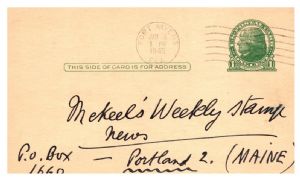 FORT MYERS
1 PM
THIS SIDE OF CARD IS FOR ADDRESS
Mekeel's Weekly Stamp
News
P.O. Box — Portland 2. (MAINE)
1660